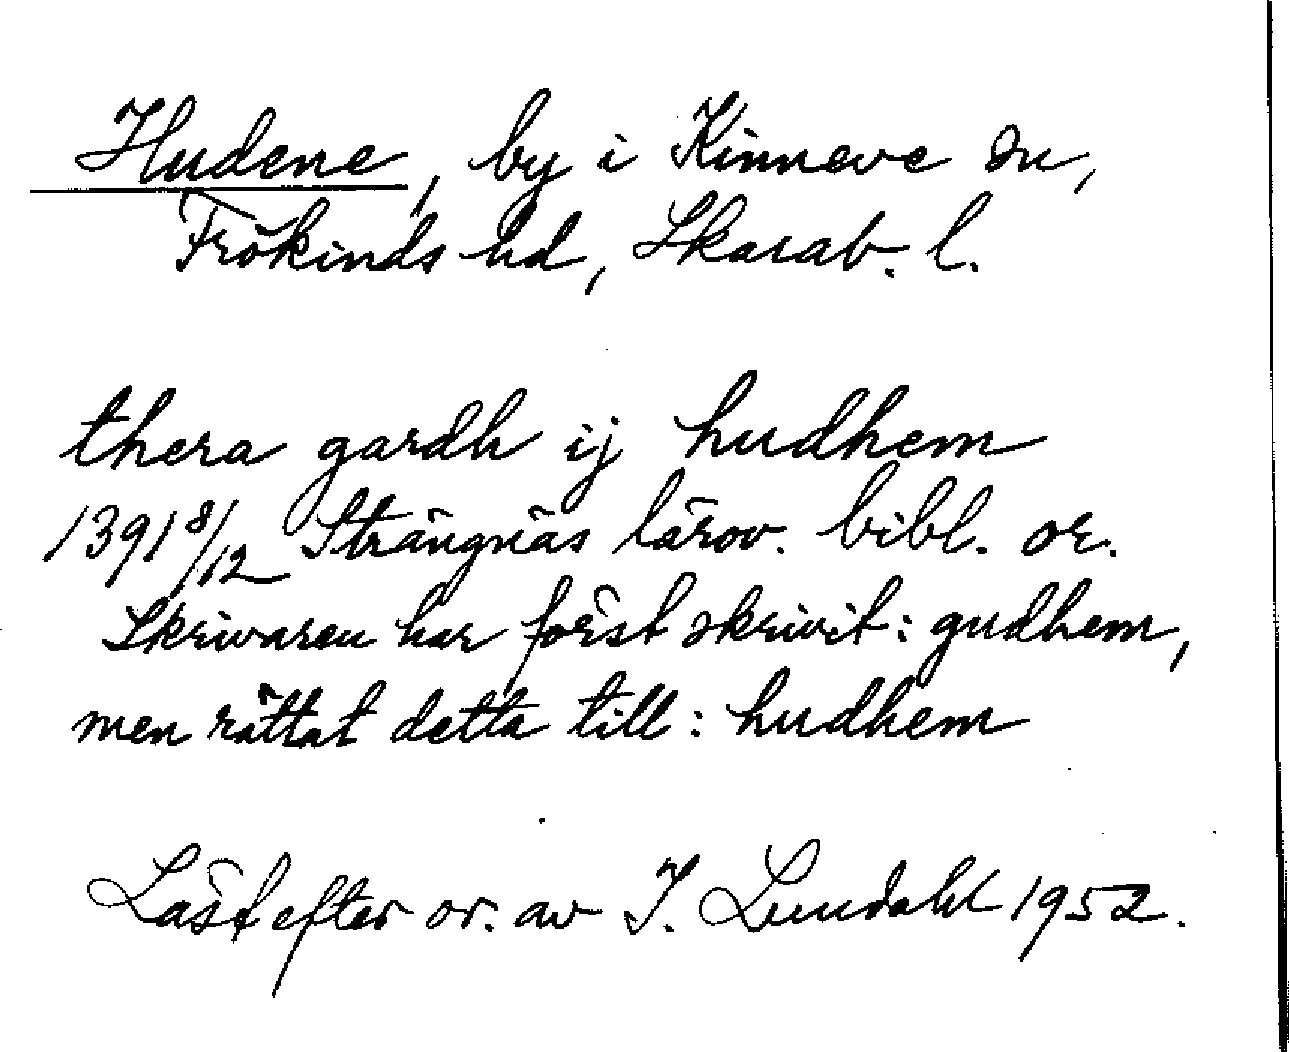 Hudene, by i Kinneve sn,
Frökinds hd, Skarab. l.
thera gardh ij hudhem
1391 8/12 Strängnäs lärov. bibl. or.
Skrivaren har först skrivit: gudhem,
men rättat detta till: hudhem
Läst efter or. av I. Lundahl 1952.